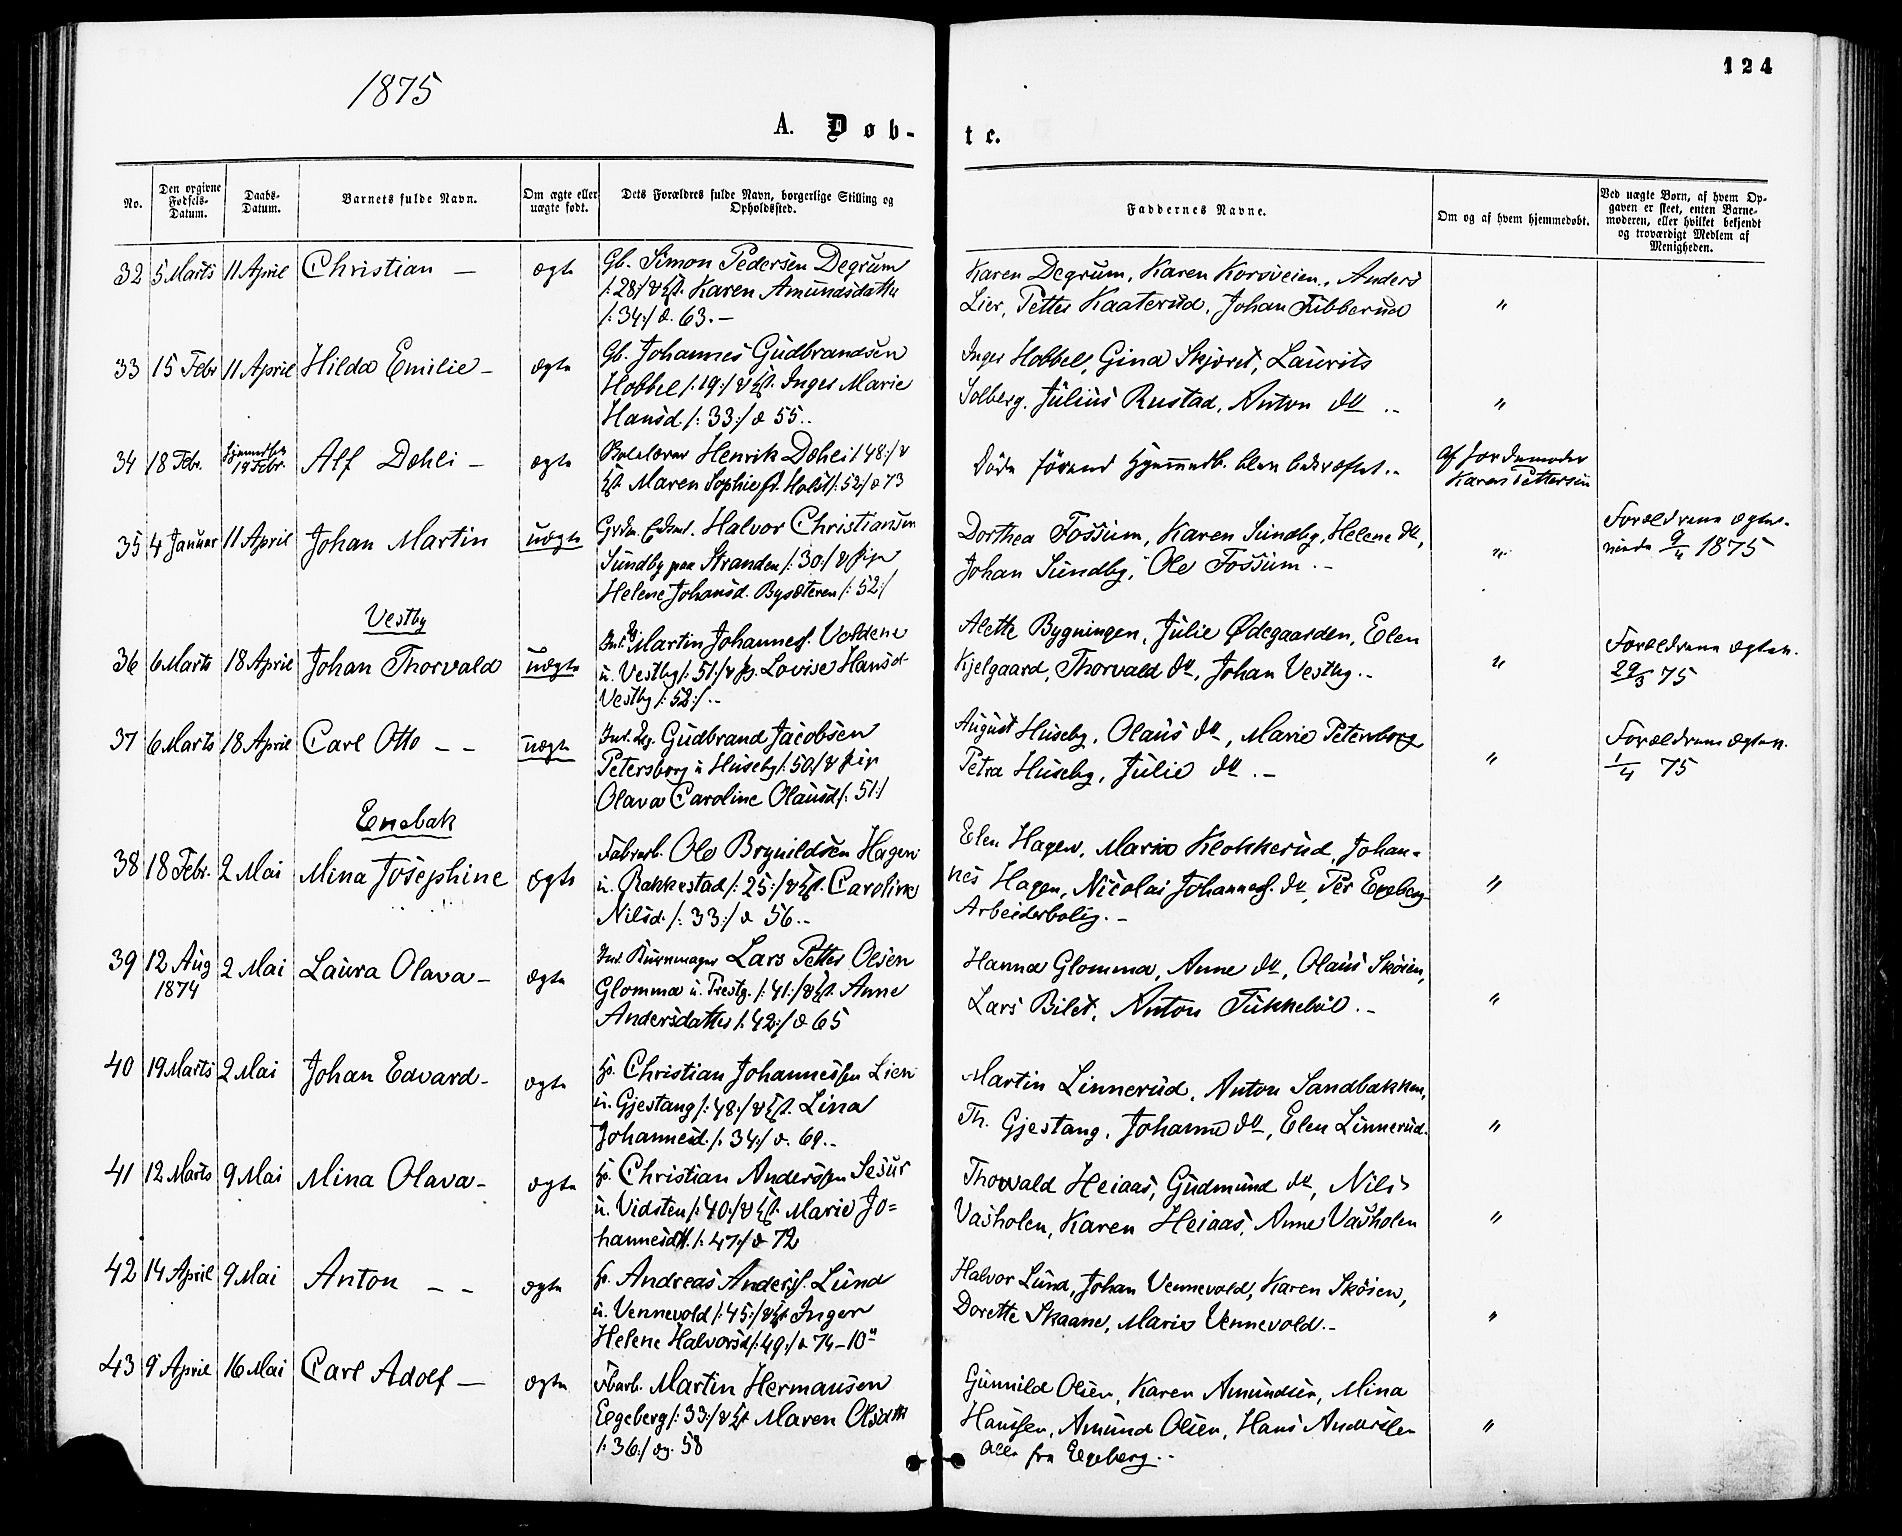 1875
124
A. Døb-
te.
No.
Den opgivne Fødsels-Datum.
Daabs-Datum.
Barnets fulde Navn.
Om ægte eller uægte født.
Dets Forældres fulde Navn, borgerlige Stilling og Opholdssted.
Faddernes Navne.
Om og af hvem hjemmedøbt.
Ved uægte Børn, af hvem Opgaven er skeet, enten Barnemoderen, eller hvilket bekjendt og troværdigt Medlem af Menigheden.
32 5 Marts 11 April Christian — ægte
Gb. Simon Pedersen Degrum
/:28:/ & Hst. Karen Amundsdatter
/:34:/ v. 63. —
Karen Degrum, Karen Korsveien, Anders
Lier, Petter Kaaterud, Johan Tubberud "
33 15 Febr 11 April Hilda Emilie — ægte
Gb. Johannes Gudbrandsen
Hobbel /:19:/ & Hst. Inger Marie
Hansd. /:33:/ v 55..
Inger Hobbel, Gina Skjøret, Laurits
Solberg, Julius Rustad, Anton do .. "
34 18 Febr. Hjemdbt. 19 Febr. Alf Døhli — ægte
Skolelærer Henrik Døhli /48:/ &
Hst. Maren Sophie f. Holst /:52:/ v 73
Døde førend Hjemmedb. blev bekræftet. -
Af Jordemoder
Karen Pettersen
35 4 Januar 11 April Johan Martin uægte
Halvor Christiansen
Sundby paa Stranden /:30:/ & pige
Helene Johansd. Bysæteren /:52:/
Dorthea Fossum, Karen Sundby, Helene do,
Johan Sundby, Ole Fossum. - "
Forældrene ægtev.
viede 9/4 1875
Vestby
36 6 Marts 18 April Johan Thorvald uægte
Martin Johannes. Voldene
u. Vestby /:51:/ & p. Lovise Hansd
Vestby /:52:/ ..
Alette Bygningen, Julie Ødegaarden, Elen
Kjelgaard, Thorvald do, Johan Vestby. - "
Forældrene ægtev.
29/3 75
37 6 Marts 18 April Carl Otto — — uægte
Ind. Lg. Gudbrand Jacobsen
Petersborg u Huseby /:50/ & pige
Olava Caroline Olausd /:51:/
August Huseby, Olaus do, Marie Petersborg
Petra Huseby, Julie do. - "
Forældrene ægtev.
1/4 75
Enebak
38 18 Febr. 2 Mai Mina Josephine ægte
Fabrarb. Ole Brynildsen Hagen
u. Rakkestad /:25:/ & Hst. Caroline
Nilsd. /:33:/ v 56..
Elen Hagen, Marie Klokkerud, Johan-
nes Hagen, Nicolai Johannes. do, Per Egeberg
Arbeiderbolig. - "
39 12 Aug 1874 2 Mai Laura Olava — ægte
Ind. Buntmager Lars Petter Olsen
Glomma u. Prestg. /:41:/ & Hst. Anne
Andersdatter /:42:/ v 65
Hanna Glomma, Anne do, Olaus Skøien,
Lars Bilet, Anton Tukkebøl. - "
40 19 Marts 2 Mai Johan Edvard — ægte
Hs. Christian Johannessen Lien
u. Gjestang /:48:/ & Hst. Lina
Johannesd. /:34:/ v. 69..
Martin Linnerud, Anton Sandbakken,
Th. Gjestang, Johanne do, Elen Linnerud. "
41 12 Marts 9 Mai Mina Olava — ægte
Hs. Christian Anderssen Sesur
u. Vidsten /:40:/ & Hst. Marie Jo=
hannesdtt. /:47:/ v 72
Thorvald Heiaas, Gudmund do, Nils
Vasholen, Karen Heiaas, Anne Vasholen "
42 14 April 9 Mai Anton — — ægte
Hs. Andreas Anders. Lund
u. Vennevold /:45:/ & Hst Inger
Helene Halvorsd /:49:/ v 74 — 10"
Halvor Lund, Johan Vennevold, Karen Skøien,
Dorette Skaane, Marie Vennevold. - "
43 9 April 16 Mai Carl Adolf — ægte
Fbarb. Martin Hermansen
Egeberg /:33:/ & Hst Maren Olsdtt
/:36:/ vg. 58
Gunnild Olsen, Karen Amundsen, Mina
Hanssen, Amund Olsen, Hans Andersen
Alle fra Egeberg. - "